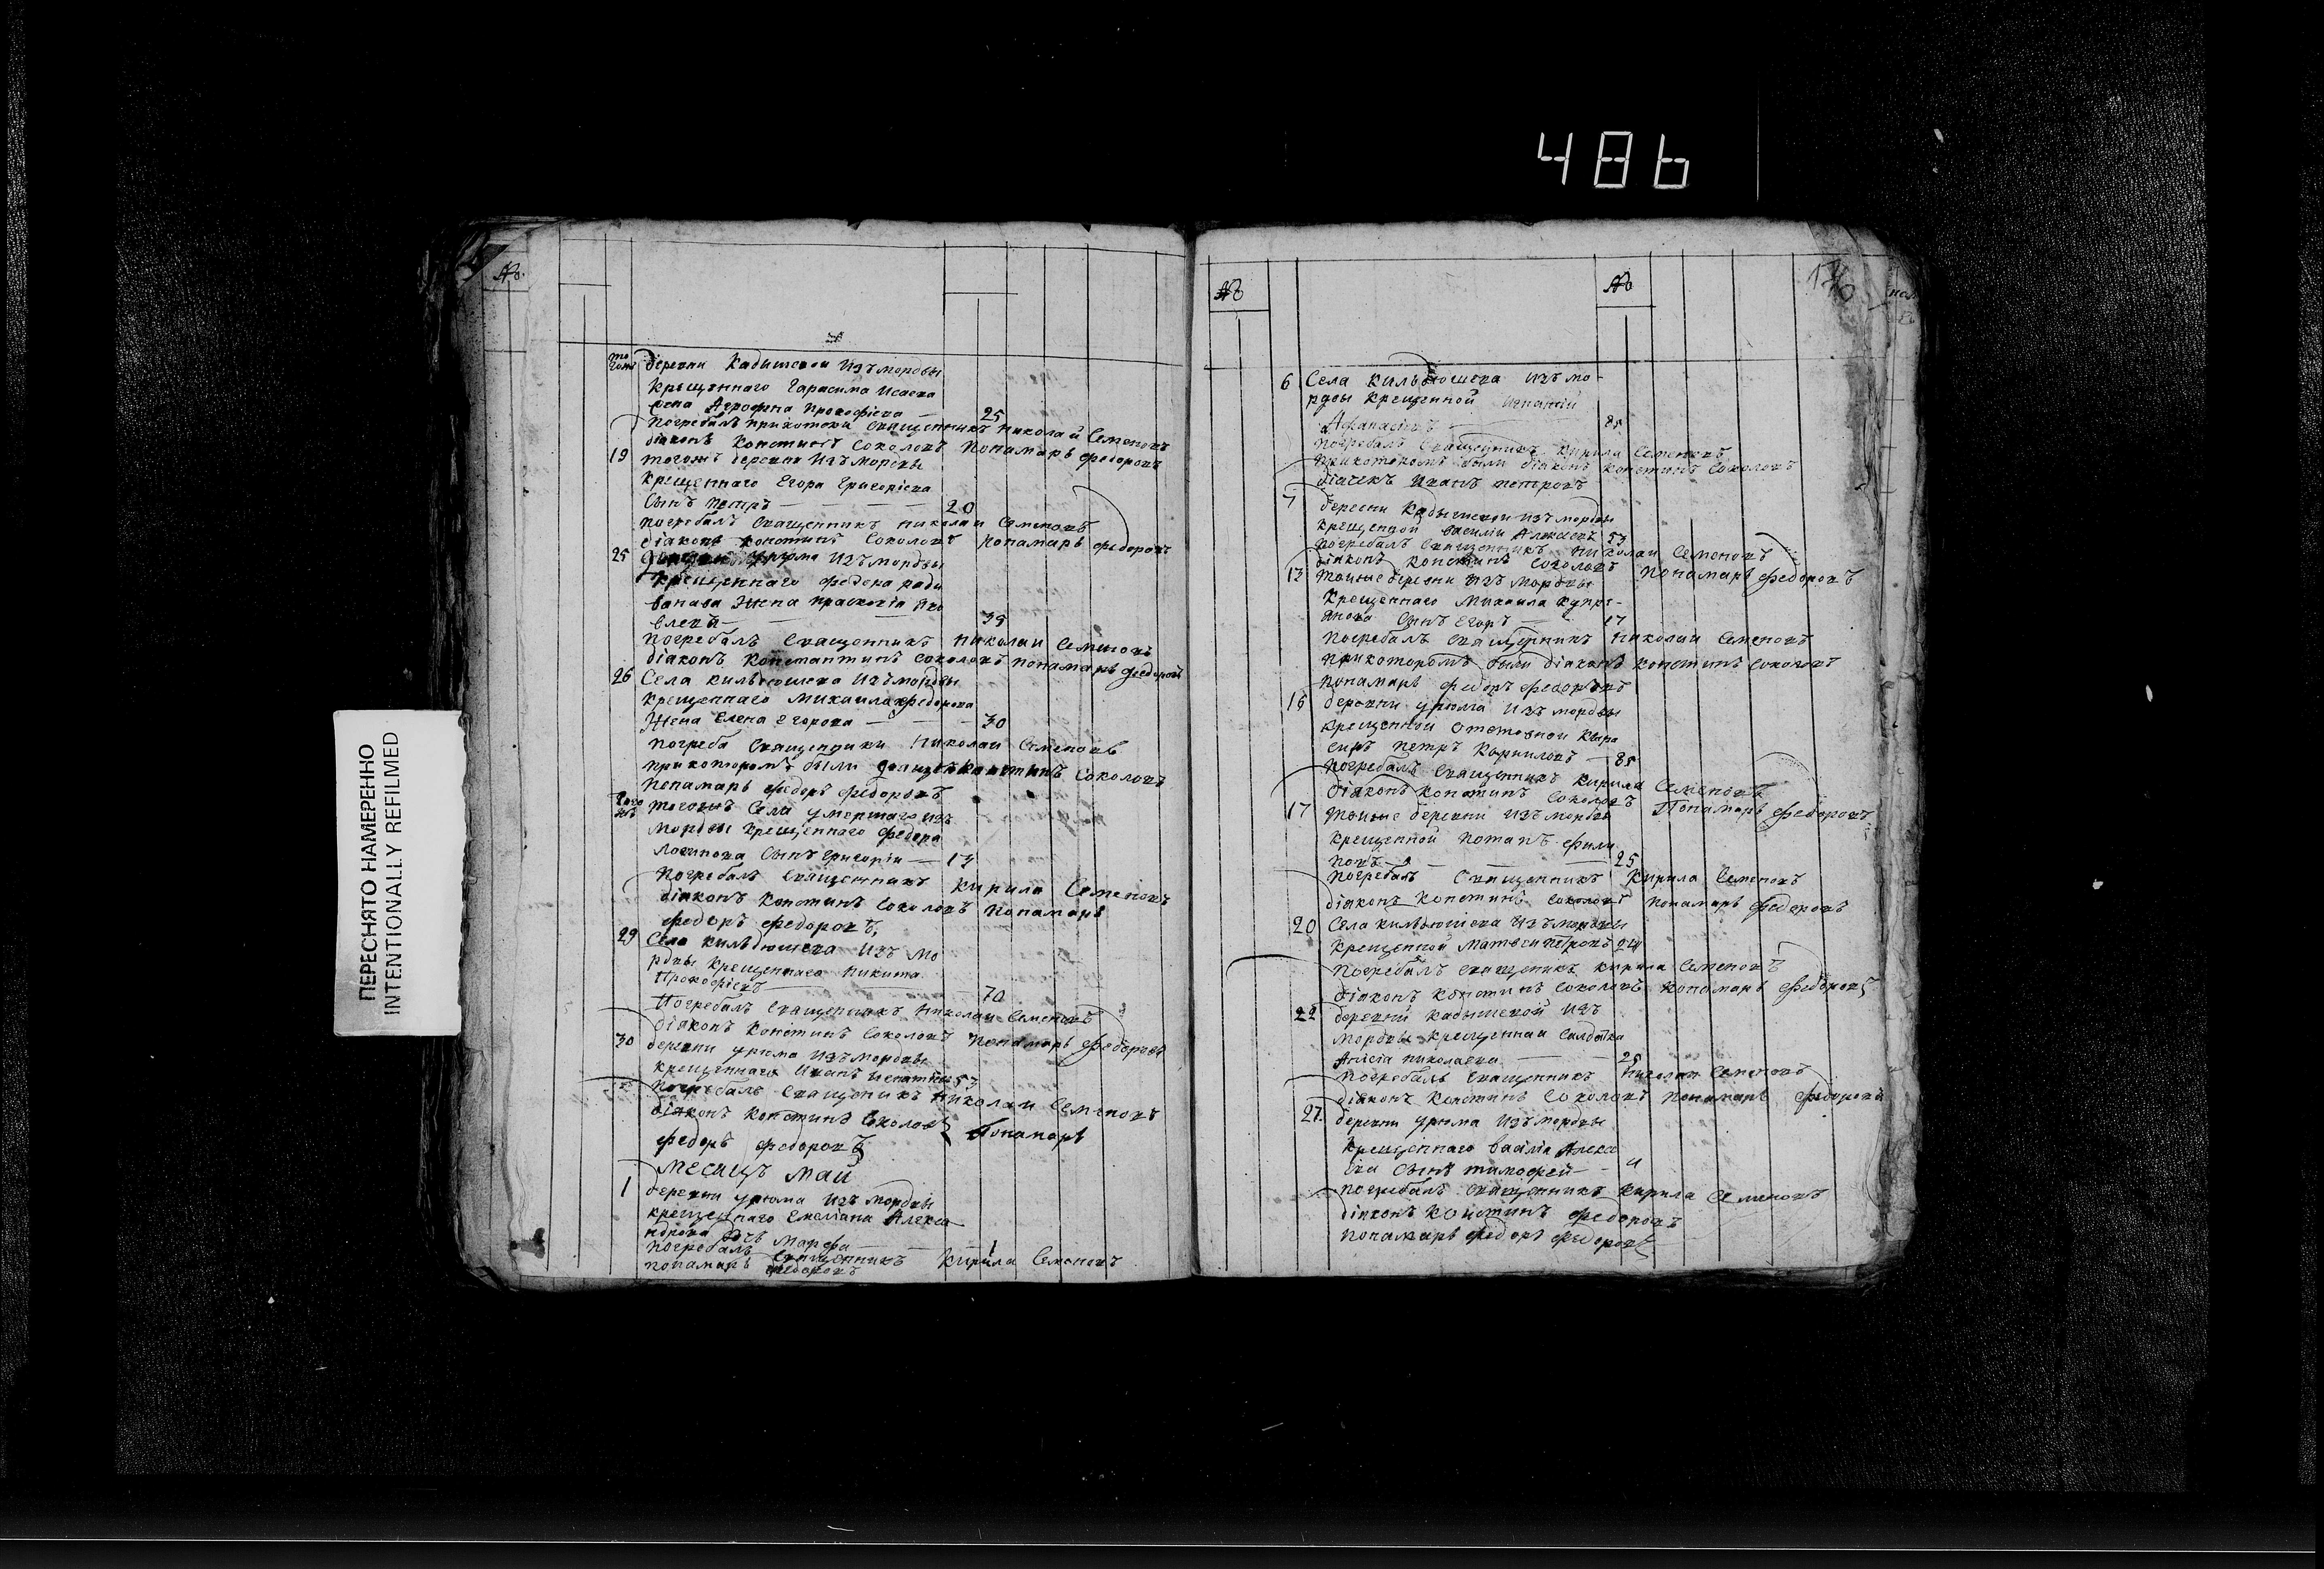 486
ПЕРЕСНЯТО НАМЕРЕННО
INTENTIONALLY REFILMED
№
того деревни Кадышевой Изъ мордвы
крещеннаго Гарасима Исаева
жена Агрофена Прокофіева — 25
Погребалъ священникъ Николай Семеновъ
діаконъ Констинъ Соколовъ Понамарь Федоровъ
19 тогожъ деревни Изъ мордвы
крещеннаго Егора Григоріева
Сынъ Петръ — 20
погребалъ Священникъ Николаи Семеновъ
діаконъ Констинъ Соколовъ понамарь федоровъ
25 Урюма Изъ мордвы
крещеннаго
Жена Прасковія
39
Погребалъ Священникъ Николаи Семеновъ
діаконъ Константинъ Соколовъ понамарь федоровъ
26 Села Кильдюшева Изъ мордвы
крещеннаго Михаила Федорова
Жена Елена Егорова — 30
погреба Священники Николаи Семеновъ
прикоторомъ были Констинъ Соколовъ
Понамарь Федоръ Федоровъ
тогожъ Села умершаго Изъ
мордвы крещеннаго Федора
Логинова Сынъ Григоріи — 13
Погребалъ Священникъ Кирила Семеновъ
діаконъ Констинъ Соколовъ Понамарь
Федоръ Федоровъ
29 Села Кильдюшева Изъ мо
рдвы Крещеннаго Никита
Прокофіевъ — 70
Погребалъ Священникъ Николаи Семеновъ
діаконъ Констинъ Соколовъ Понамарь Федоровъ
30 деревни урюма Изъ мордвы
крещеннаго Иванъ Игнатіевъ 53
Погребалъ Священикъ Николаи Семеновъ
діаконъ Констинъ Соколовъ Понамарь
Федоръ Федоровъ
Месяцъ Май
1 деревни урюма Изъ мордвы
крещеннаго Емеліана Алекса
ндрова дочь Марфа — 1
Погребалъ Священникъ Кирила Семеновъ
понамарь Федоровъ
№
№
6 Села Кильдюшева Изъ мо-
рдвы Крещенной Игнатій
Афанасіевъ — 85
Погребалъ Священникъ Кирила Семеновъ
Прикоторомъ были діаконъ Констинъ Соколовъ
діачекъ Иванъ Петровъ
7 деревни Кадышевои Изъ мордвы
крещенной Василіи Алексіевъ 53
погребалъ Священникъ Николаи Семеновъ
діаконъ Констинъ Соколовъ Понамарь Федоровъ
13 тойже деревни Изъ мордвы
Крещеннаго Михаила Купри-
янова Сынъ Егоръ — 17
погребалъ Священникъ Николаи Семеновъ
прикоторомъ были діаконъ Констинъ Соколовъ
понамарь Федоръ Федоровъ
16 деревни урюма Изъ мордвы
крещенной
Петръ Карниловъ — 85
Погребалъ Священникъ Кирила Семеновъ
діаконъ Констинъ Соколовъ Понамарь Федоровъ
17 тойже деревни Изъ мордвы
крещенной Потапъ Фили
повъ — 25
погребалъ Священникъ Кирила Семеновъ
діаконъ Констинъ Соколовъ понамарь Федоровъ
20 Села Кильдюшева Изъ мордвы
крещенной Матвеи Петровъ 24
погребалъ священикъ Кирила Семеновъ
діаконъ Констинъ Соколовъ Понамарь Федоровъ
22 деревни Кадышевой Изъ
мордвы крещенная Салдатка
Анісія Николаева — 25
погребалъ Священникъ Николаи Семеновъ
діаконъ Констинъ Соколовъ Понамарь Федоровъ
27 деревни урюма Изъ мордвы
крещеннаго Алекс
іева Сынъ Тимофей —
погребалъ Священникъ Кирила Семеновъ
діаконъ Констинъ Федоровъ
понамарь Федоръ Федоровъ